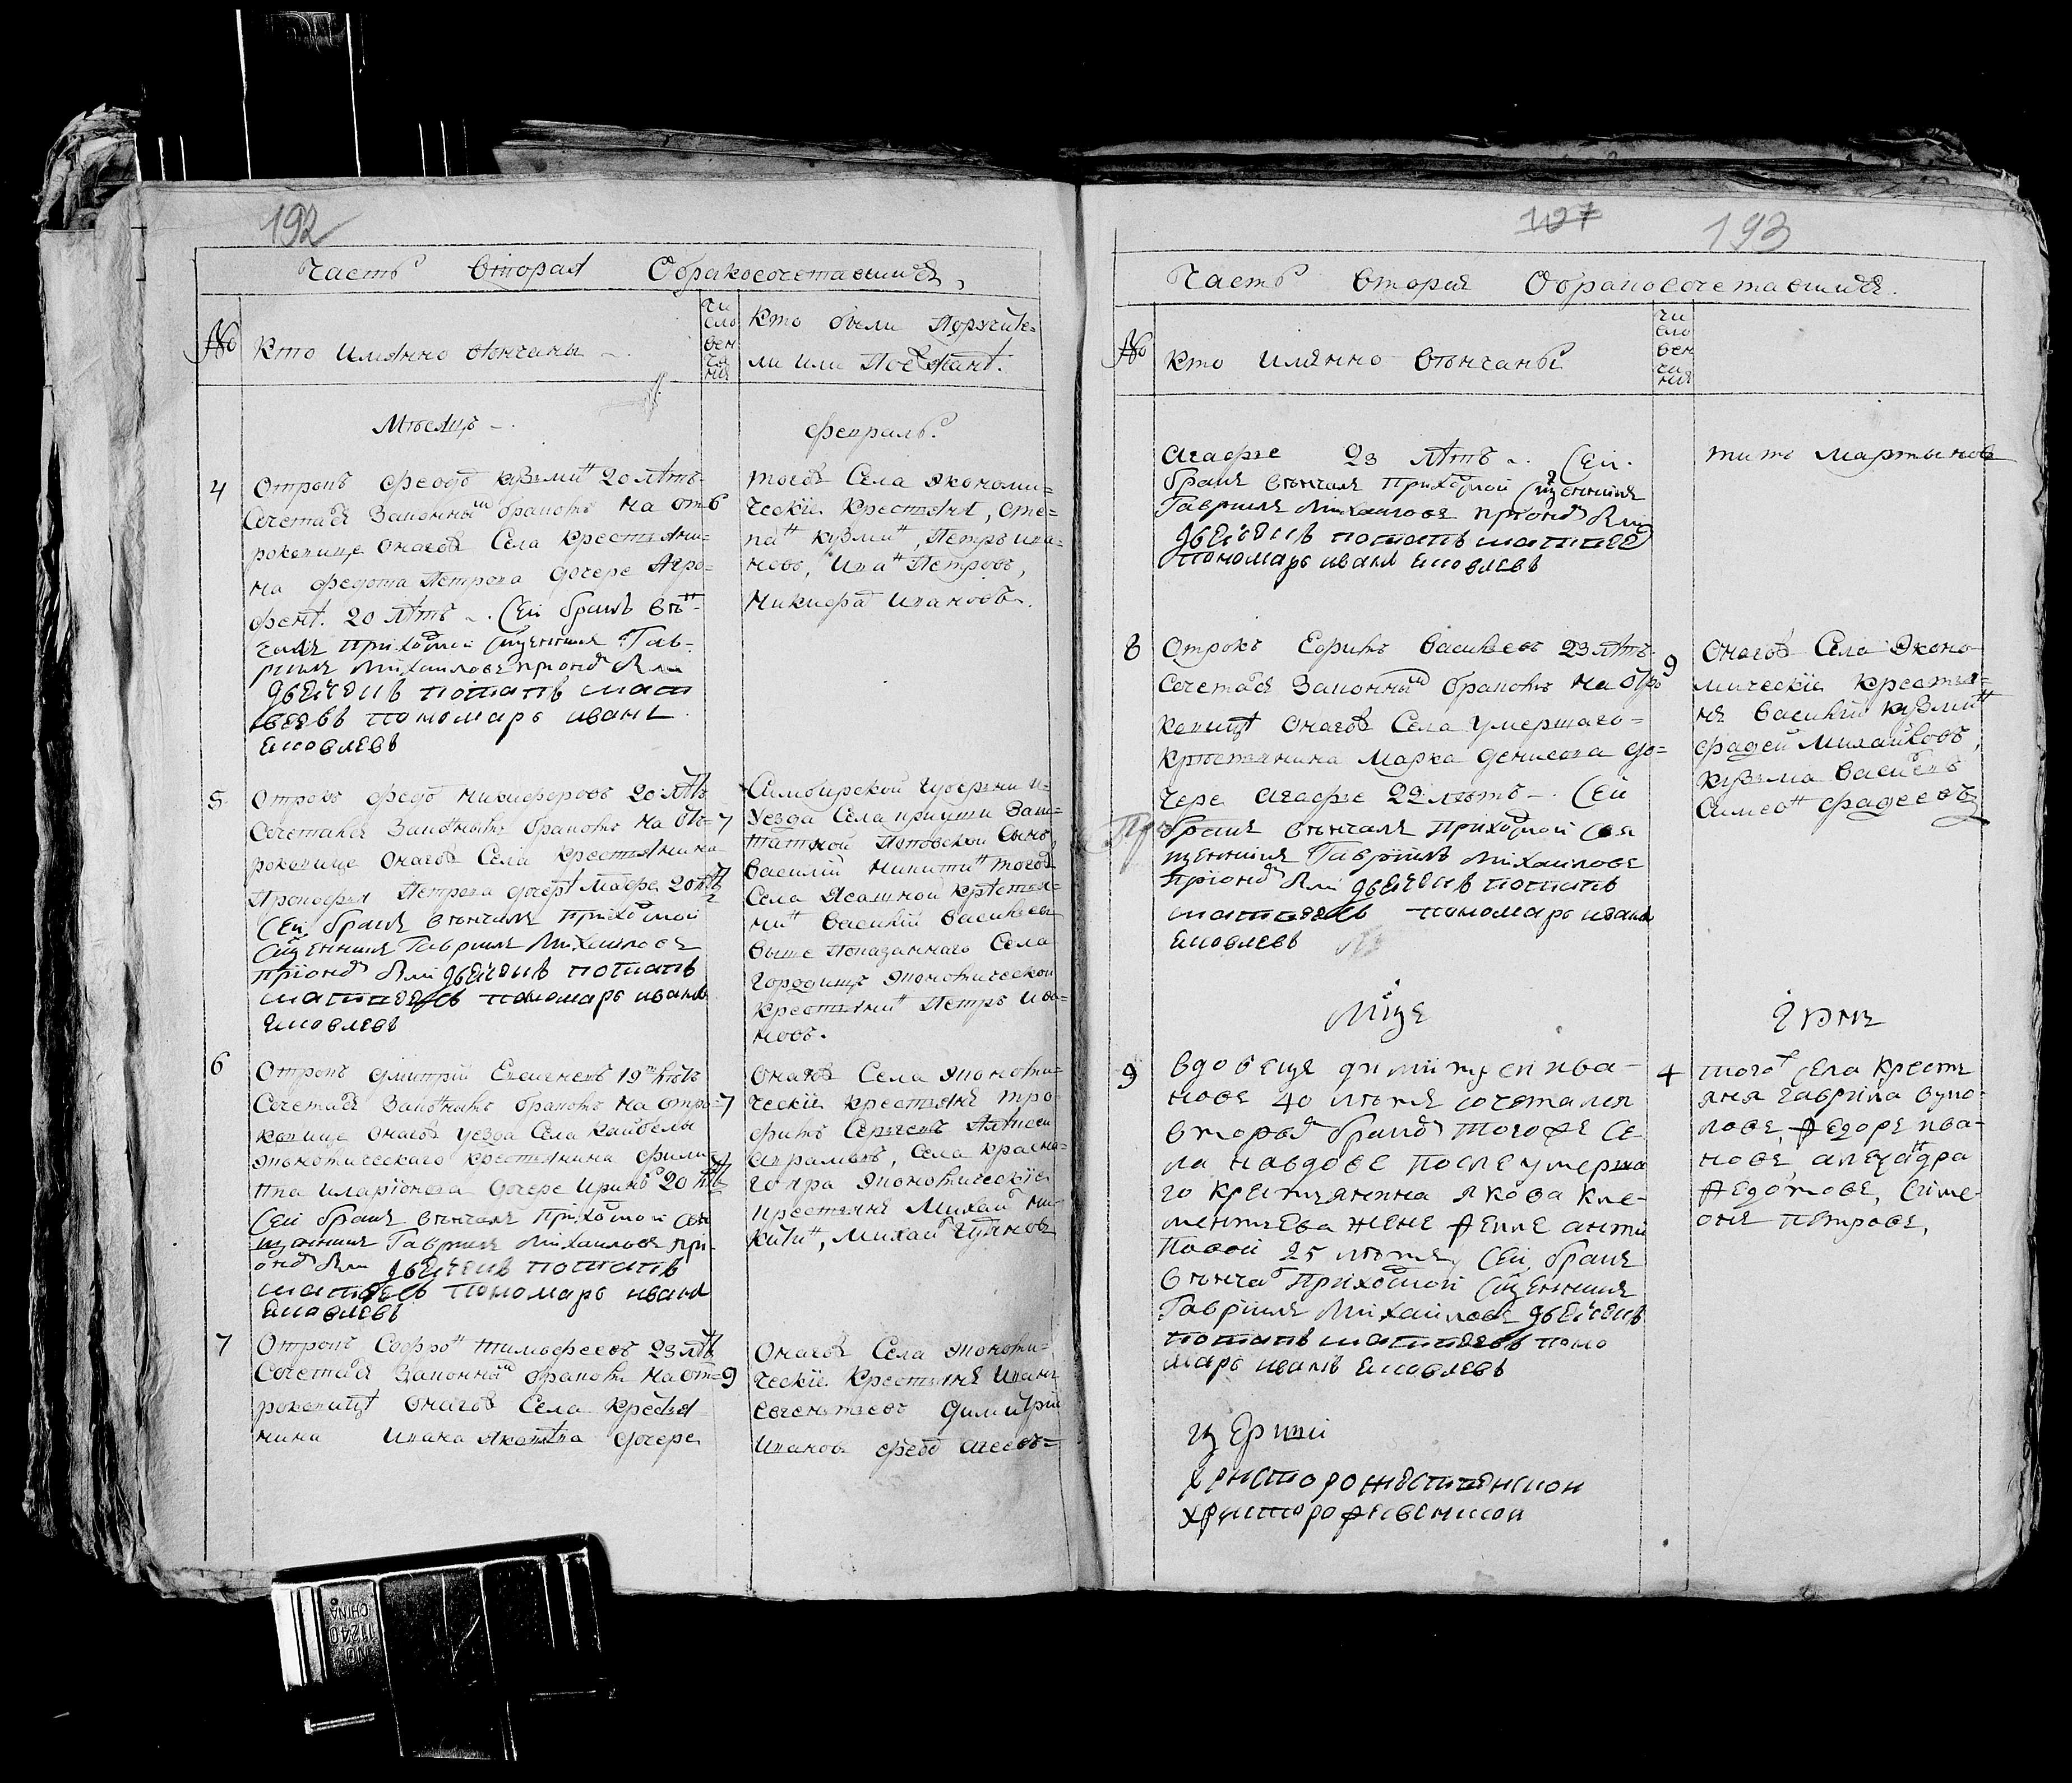 192
Часть вторая Обракосочетавшихся,
№
Кто имянно венчаны
чи
сло
вен
ча
ния
Кто были Поручите-
ли или Поезжане.
Месяцъ
Февраль.
4
Отрокъ Федотъ Кузминъ 20 летъ
Сочетался Законнымъ бракомъ на от-
6
роковице онагожъ Села Крестьяни-
на Федота Петрова дочере Агро-
фене 20 летъ. Сей бракъ вен-
чалъ приходской священникъ Гав-
риилъ Михаиловъ при ономъ были
дьячекъ потапъ мат
веевъ пономарь иванъ
яковлевъ
тогожъ Села экономи-
ческие Крестьяня, Сте-
панъ Кузминъ, Петръ ива-
новъ, Иванъ Петровъ,
Никифоръ Ивановъ.
5
Отрокъ Федоръ Никифоровъ 20 летъ
Сочетался Законнымъ бракомъ на от-
7
роковице онагожъ Села Крестьянина
Прокофья Петрова дочере Марфе 20 летъ
Сей бракъ венчалъ приходской
священникъ Гавриилъ Михаиловъ
при ономъ были дьячекъ потапъ
матвеевъ пономарь иванъ
яковлевъ
Симбирской Губернии и
Уезда Села
Поповской Сынъ
Василий Никитинъ тогожъ
Села Ясашной Крестья-
нинъ Василий Васильевъ
выше показаннаго Села
Городищъ экономической
Крестьянинъ Петръ Ива-
новъ.
6
Отрокъ Дмитрий 19 летъ
Сочетался Законнымъ бракомъ на отро-
7
ковице онагожъ уезда Села Кайбелы
экономическаго крестьянина Фили-
ппа иларионова дочере Ирине 20 летъ
Сей бракъ венчалъ приходской свя
щенникъ Гавриилъ Михаиловъ при
ономъ были дьячекъ потапъ
матвеевъ пономарь иванъ
яковлевъ
онагожъ Села экономи-
ческие крестьяня Тро-
фимъ Сергеевъ
Села Красна-
го яра экономические
крестьяня Михайла Ни-
китинъ, Михайла
7
Отрокъ Софронъ Тимофеевъ 23 летъ
Сочетался Законнымъ бракомъ на от-
9
роковице онагожъ Села Крестья-
нина Ивана дочере
онагожъ Села экономи-
ческие Крестьяня Иванъ
Димитрий
Ивановъ Федоръ
107
193
Часть вторая Обракосочетавшихся.
№
Кто имянно венчаны
чи
сло
вен
ча
ния
Агафье 23 летъ. Сей
бракъ венчалъ приходской священникъ
Гавриилъ Михаиловъ при ономъ были
дьячекъ потапъ матвеевъ
пономарь иванъ яковлевъ
тита Мартыновъ
8
Отрокъ Ефимъ Васильевъ 23 летъ
Сочетался Законнымъ бракомъ на отро
9
ковице онагожъ Села умершаго
Крестьянина Марка Денисова до-
чере Агафье 22 летъ. Сей
бракъ венчалъ приходской свя
щенникъ Гавриилъ Михаиловъ
при ономъ были дьячекъ потапъ
матвеевъ пономарь иванъ
яковлевъ
онагожъ Села эконо
мические крестья-
ня Василий Кузминъ
Фадей Михайловъ,
Кузьма Васильевъ
Симеонъ Фадеевъ
Мцъ
Июнь
9
вдовецъ димитрей ива-
новъ 40 летъ сочетался
4
вторымъ бракомъ тогоже се-
ла на вдове после умерша
го крестьянина якова кле-
ментьева жене Фекле анти
повой 25 летъ, Сей бракъ
венчалъ приходской священникъ
Гавриилъ Михаиловъ дьячекъ
потапъ матвеевъ поно
марь иванъ яковлевъ
тогожъ Села крестъ
яня гаврила вуко-
ловъ, Федоръ ива-
новъ, александра
Федотовъ, Симе-
онъ петровъ,
церкви
христорожественской
христорожевенской